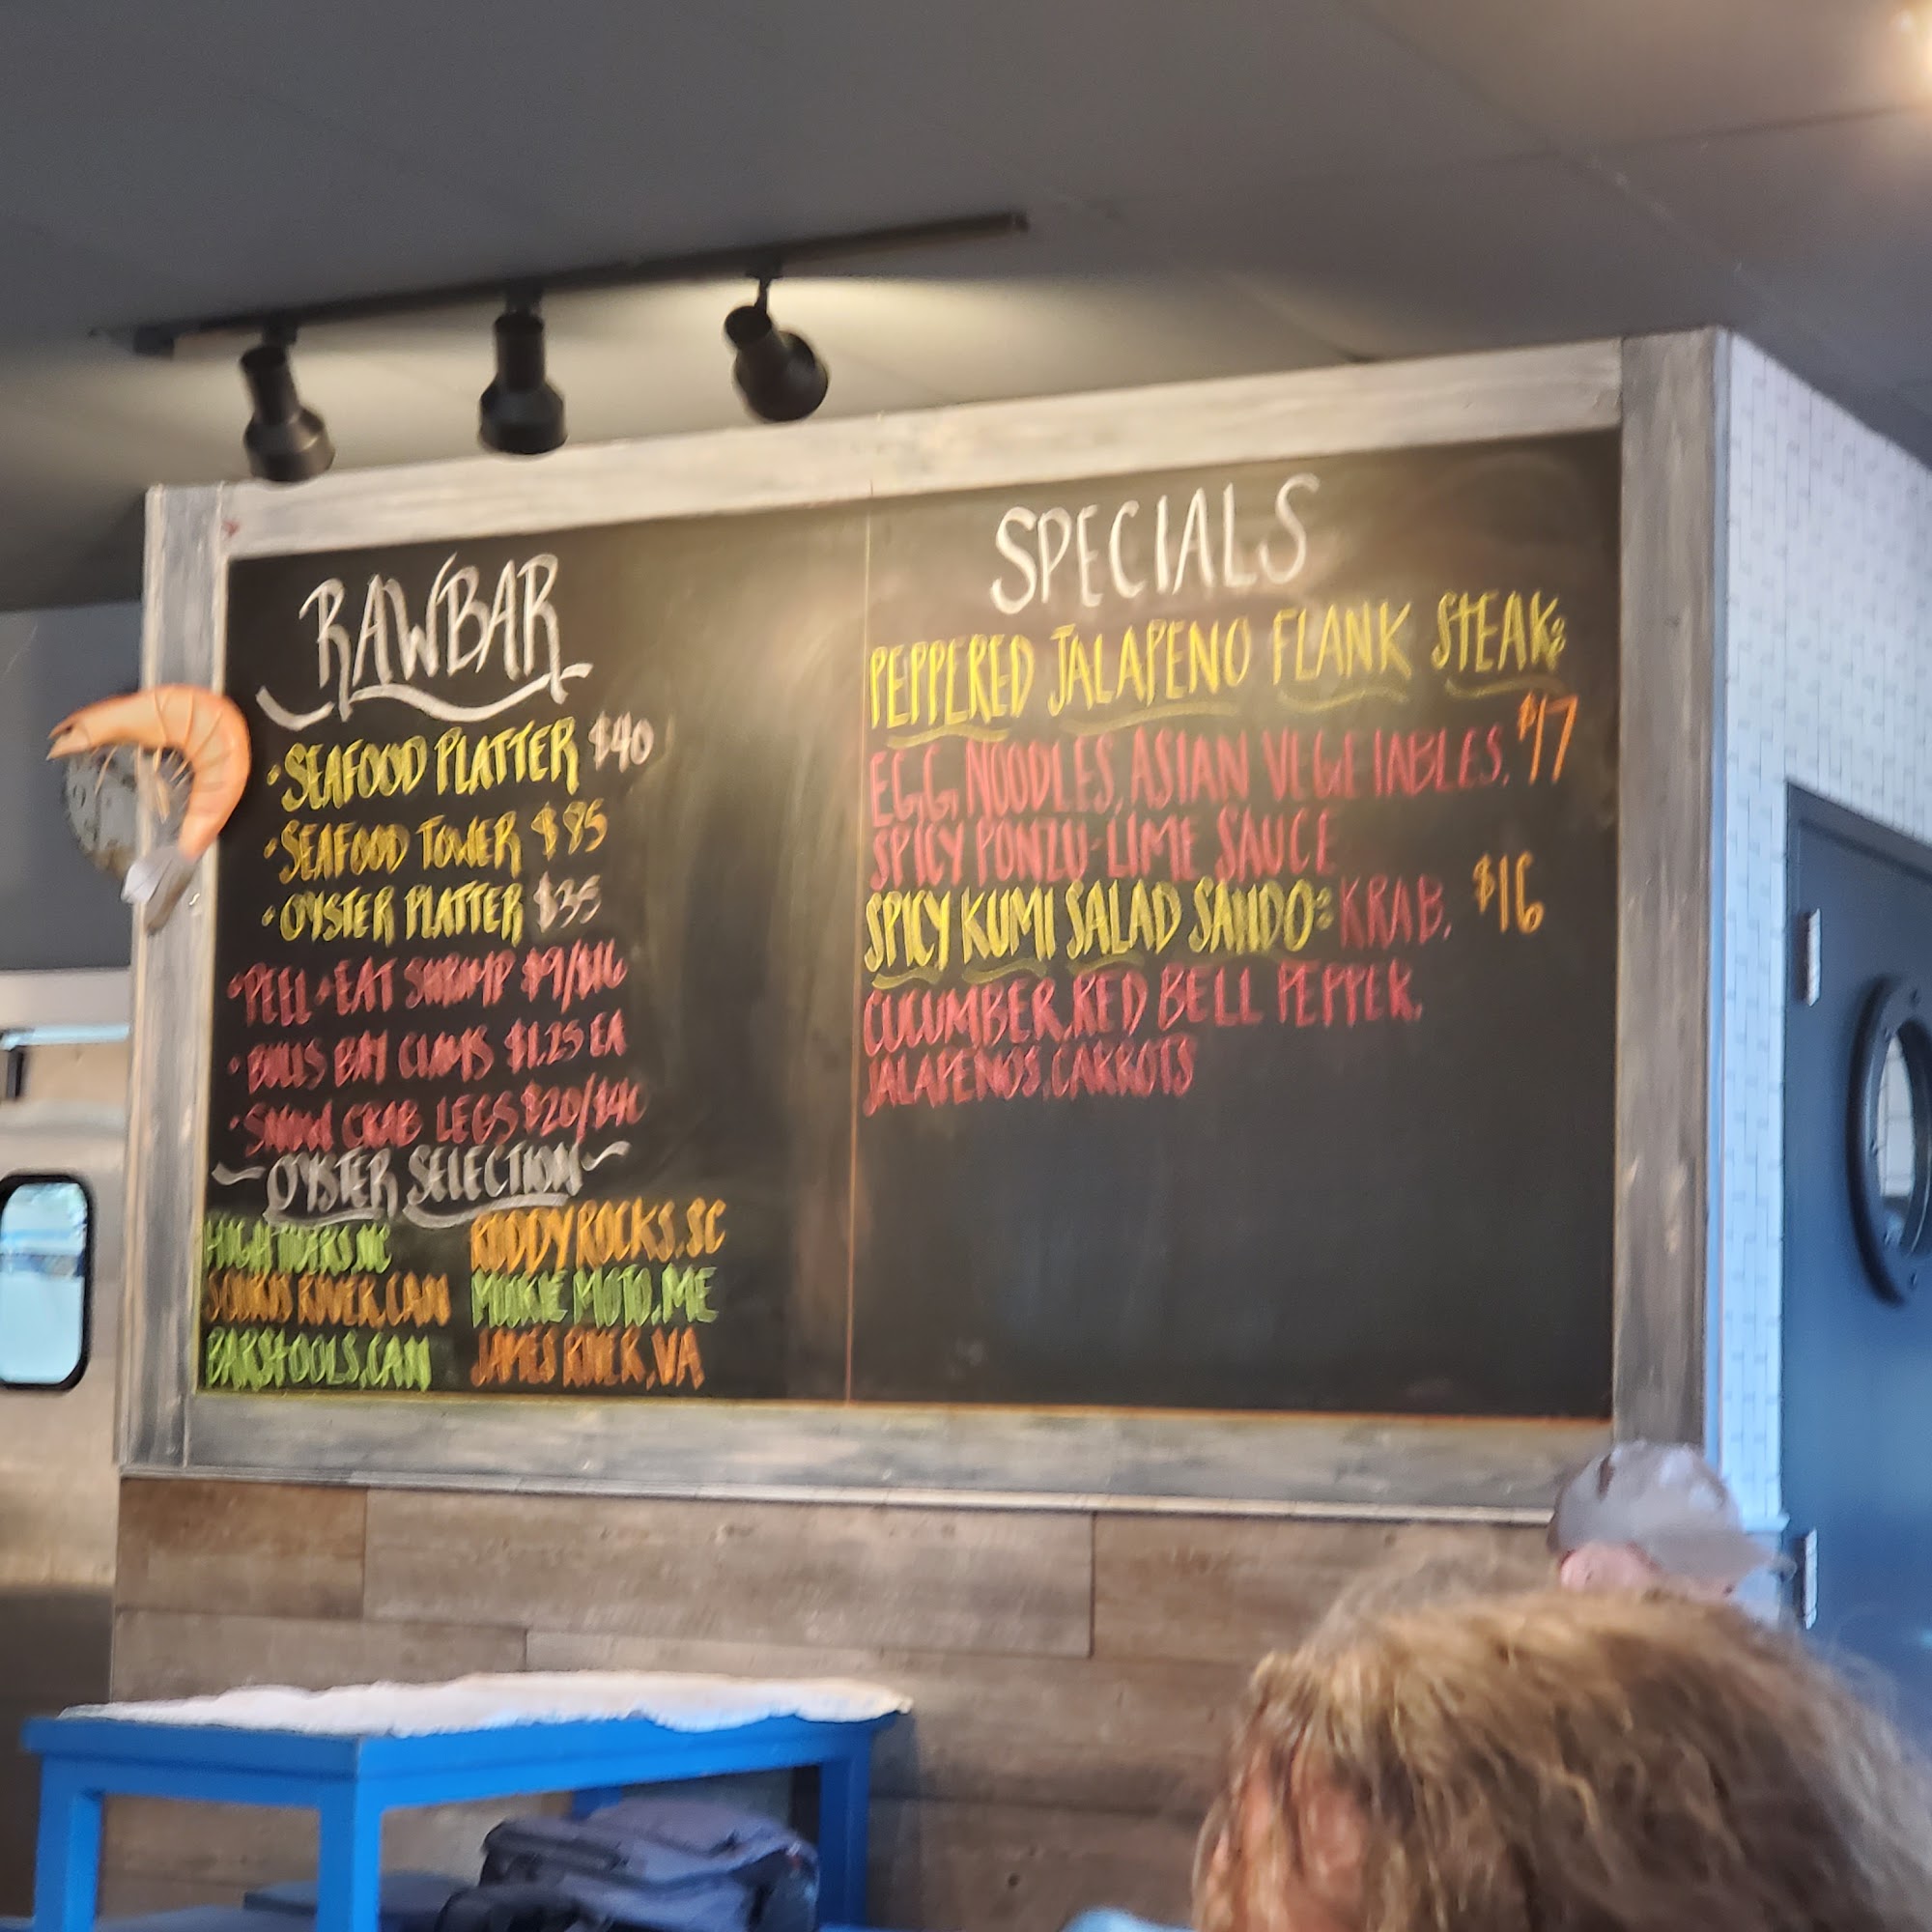 RAWBAR
• SEAFOOD PLATTER $40
• SEAFOOD TOWER $85
• OYSTER PLATTER $35
• PEEL + EAT SHRIMP $9/$16
• BULLS BAY CLAMS $1.25 EA
• SNOW CRAB LEGS $20/$40
~ OYSTER SELECTION ~
HIGH TIDERS, NC
SOURIS RIVER, CAN
BARSTOOLS, CAN
RUDDY ROCKS, SC
MOOKIE MOTO, ME
JAMES RIVER, VA
SPECIALS
PEPPERED JALAPENO FLANK STEAK:
EGG NOODLES, ASIAN VEGETABLES, $17
SPICY PONZU-LIME SAUCE
SPICY KUMI SALAD SANDO: KRAB, $16
CUCUMBER, RED BELL PEPPER,
JALAPENOS, CARROTS